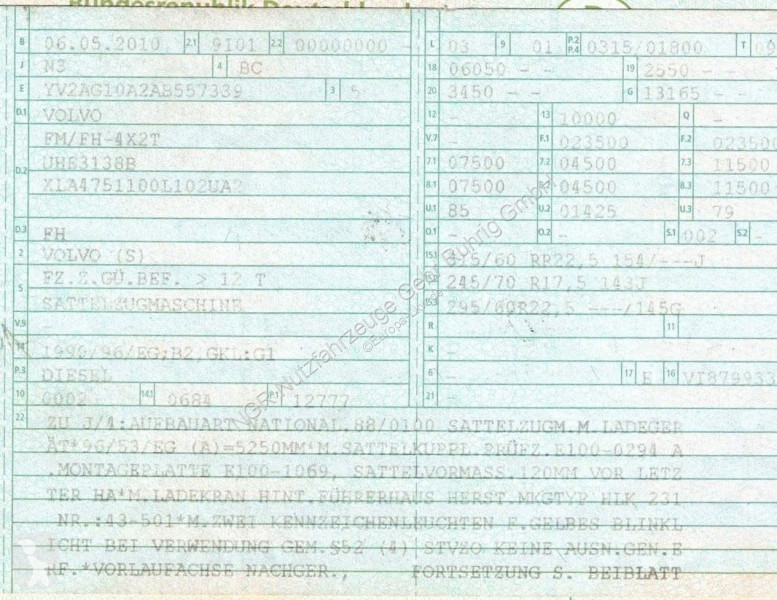 Bundesrepublik Deutschland
B 06.05.2010 2.1 9101 2.2 00000000 - L 03 9 01 P.2 P.4 0315/01800 T
J N3 4 BC 18 06050 - - 19 2550 - -
E YV2AG10A2AB557339 3 5 20 3450 - - G 13165 - -
D.1 VOLVO 12 - 13 10000 Q -
FM/FH-4X2T V.7 - F.1 023500 F.2 023500
D.2 UH63138B 7.1 07500 7.2 04500 7.3 11500
XLA4751100L102UA2 8.1 07500 8.2 04500 8.3 11500
U.1 85 U.2 01425 U.3 79
D.3 FH O.1 - O.2 - S.1 002 S.2 -
2 VOLVO (S) 15.1 315/60 RR22,5 154/---J
5 FZ.Z.GÜ.BEF. > 12 T 245/70 R17,5 143J
SATTELZUGMASCHINE 15.3 295/60R22,5 ---/145G
V.9 - R 11
14 1990/96/EG;B2,GKL:G1 K -
P.3 DIESEL 6 - 17 E 16 VI879933
10 0002 14.1 0684 P.1 12777 21 -
22 ZU J/4:AUFBAUART NATIONAL.88/0100 SATTELZUGM.M.LADEGER
ÄT*96/53/EG (A)=5250MM*M.SATTELKUPPL.PRÜFZ.E100-0294 A
.MONTAGEPLATTE E100-1069, SATTELVORMASS.120MM VOR LETZ
TER HA*M.LADEKRAN HINT.FÜHRERHAUS HERST.MKGTYP HLK 231
NR.:43-501*M.ZWEI KENNZEICHENLEUCHTEN F.GELBES BLINKL
ICHT BEI VERWENDUNG GEM.§52 (4) STVZO KEINE AUSN.GEN.E
RF.*VORLAUFACHSE NACHGER., FORTSETZUNG S. BEIBLATT